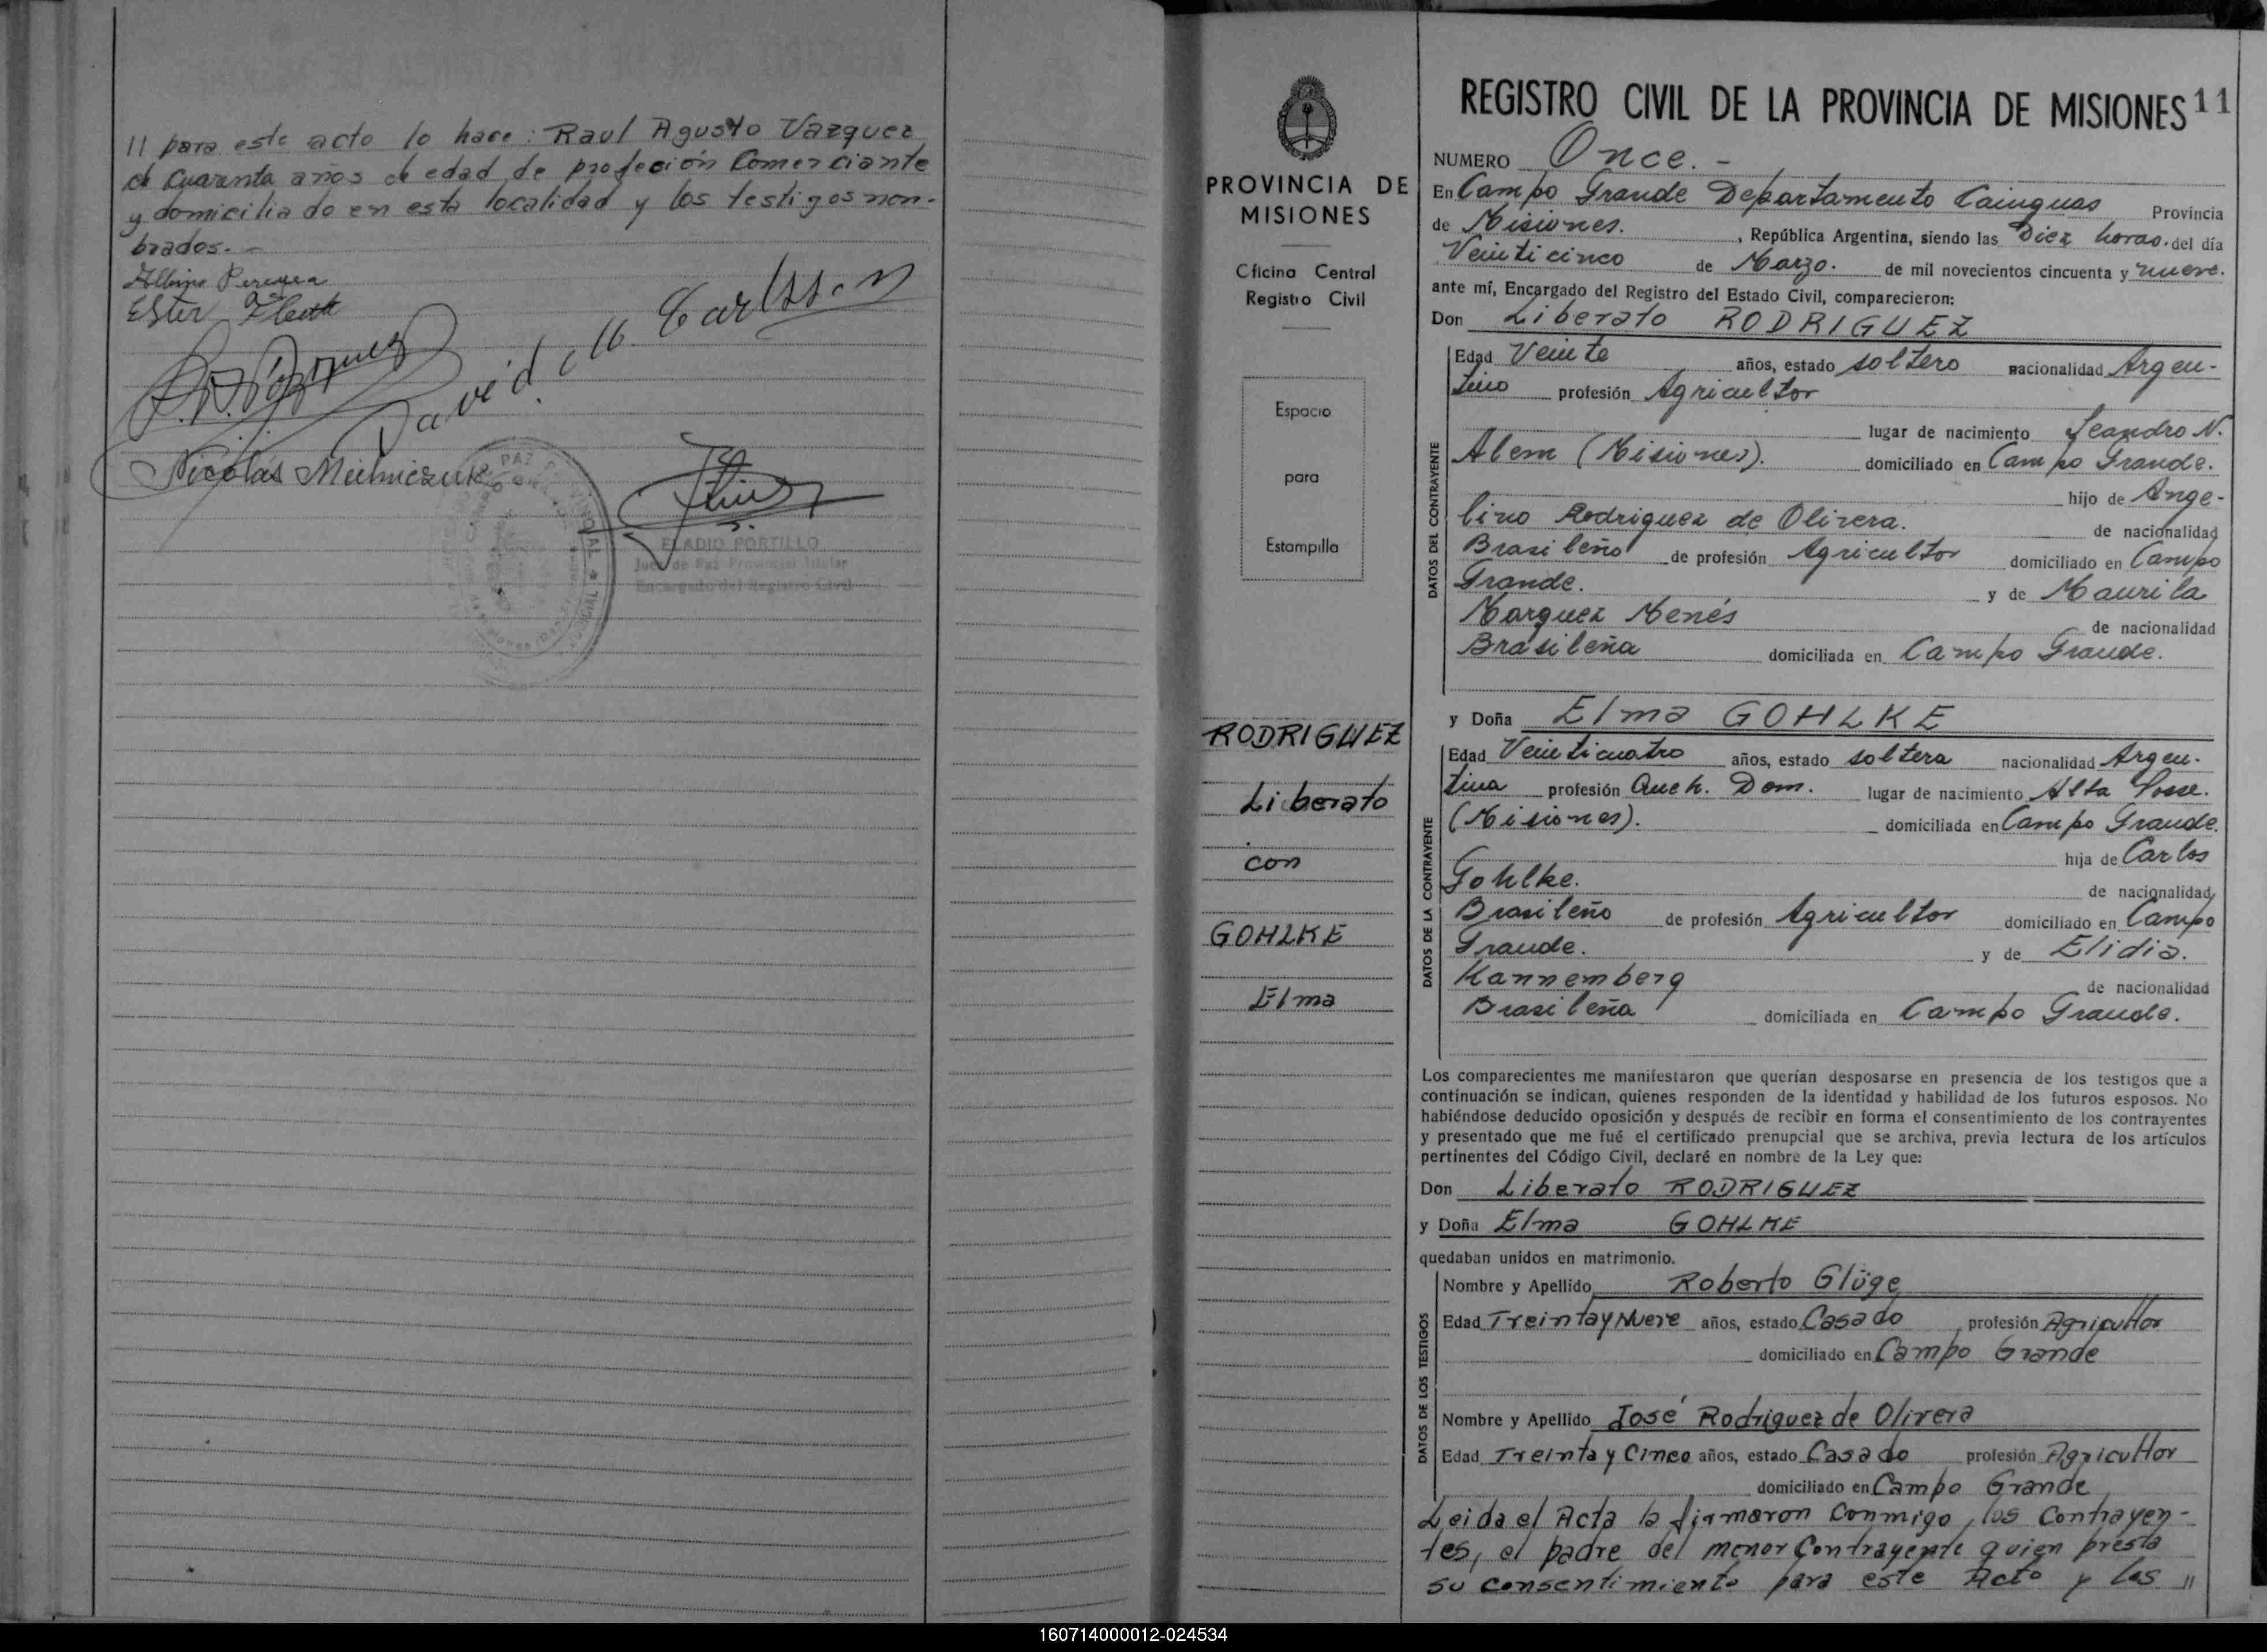 11 para este acto lo hace: Raul Agusto Vazquez
de Cuarenta años de edad de profeción Comerciante
y domiciliado en esta localidad y los testigos non-
brados.-
Albino Pereyra
Ester
David M. Carlsson
Nicolás Mielniczuk
ELADIO PORTILLO
Juez de Paz Provincial Titular
Encargado del Registro Civil
PROVINCIA DE
MISIONES
Oficina Central
Registro Civil
Espacio
para
Estampilla
RODRIGUEZ
Liberato
con
GOHLKE
Elma
REGISTRO CIVIL DE LA PROVINCIA DE MISIONES 11
NUMERO Once.-
En Campo Grande Departamento Cainguas Provincia
de Misiones. , República Argentina, siendo las Diez horas. del día
Veinticinco de Marzo. de mil novecientos cincuenta y nueve.
ante mí, Encargado del Registro del Estado Civil, comparecieron:
Don Liberato RODRIGUEZ
DATOS DEL CONTRAYENTE
Edad Veinte años, estado soltero nacionalidad Argen-
tino profesión Agricultor
lugar de nacimiento Leandro N.
Alem (Misiones). domiciliado en Campo Grande.
hijo de Ange-
lino Rodriguez de Olivera. de nacionalidad
Brasileño de profesión Agricultor domiciliado en Campo
Grande. y de Maurila
Marquez Menés de nacionalidad
Brasileña domiciliada en Campo Grande.
y Doña Elma GOHLKE
DATOS DE LA CONTRAYENTE
Edad Veinticuatro años, estado soltera nacionalidad Argen-
tina profesión Queh. Dom. lugar de nacimiento Alta
(Misiones). domiciliada en Campo Grande.
hija de Carlos
Gohlke. de nacionalidad
Brasileño de profesión Agricultor domiciliado en Campo
Grande. y de Elidia.
Kannemberg de nacionalidad
Brasileña domiciliada en Campo Grande.
Los comparecientes me manifestaron que querían desposarse en presencia de los testigos que a
continuación se indican, quienes responden de la identidad y habilidad de los futuros esposos. No
habiéndose deducido oposición y después de recibir en forma el consentimiento de los contrayentes
y presentado que me fué el certificado prenupcial que se archiva, previa lectura de los artículos
pertinentes del Código Civil, declaré en nombre de la Ley que:
Don Liberato RODRIGUEZ
y Doña Elma GOHLKE
quedaban unidos en matrimonio.
DATOS DE LOS TESTIGOS
Nombre y Apellido Roberto Glüge
Edad Treinta y Nueve años, estado Casado profesión Agricultor
domiciliado en Campo Grande
Nombre y Apellido José Rodriguez de Olivera
Edad Treinta y Cinco años, estado Casado profesión Agricultor
domiciliado en Campo Grande
Leida el Acta la firmaron conmigo, los Contrayen-
tes, el padre del menor Contrayente quien presta
su consentimiento para este Acto y los 11
160714000012-024534